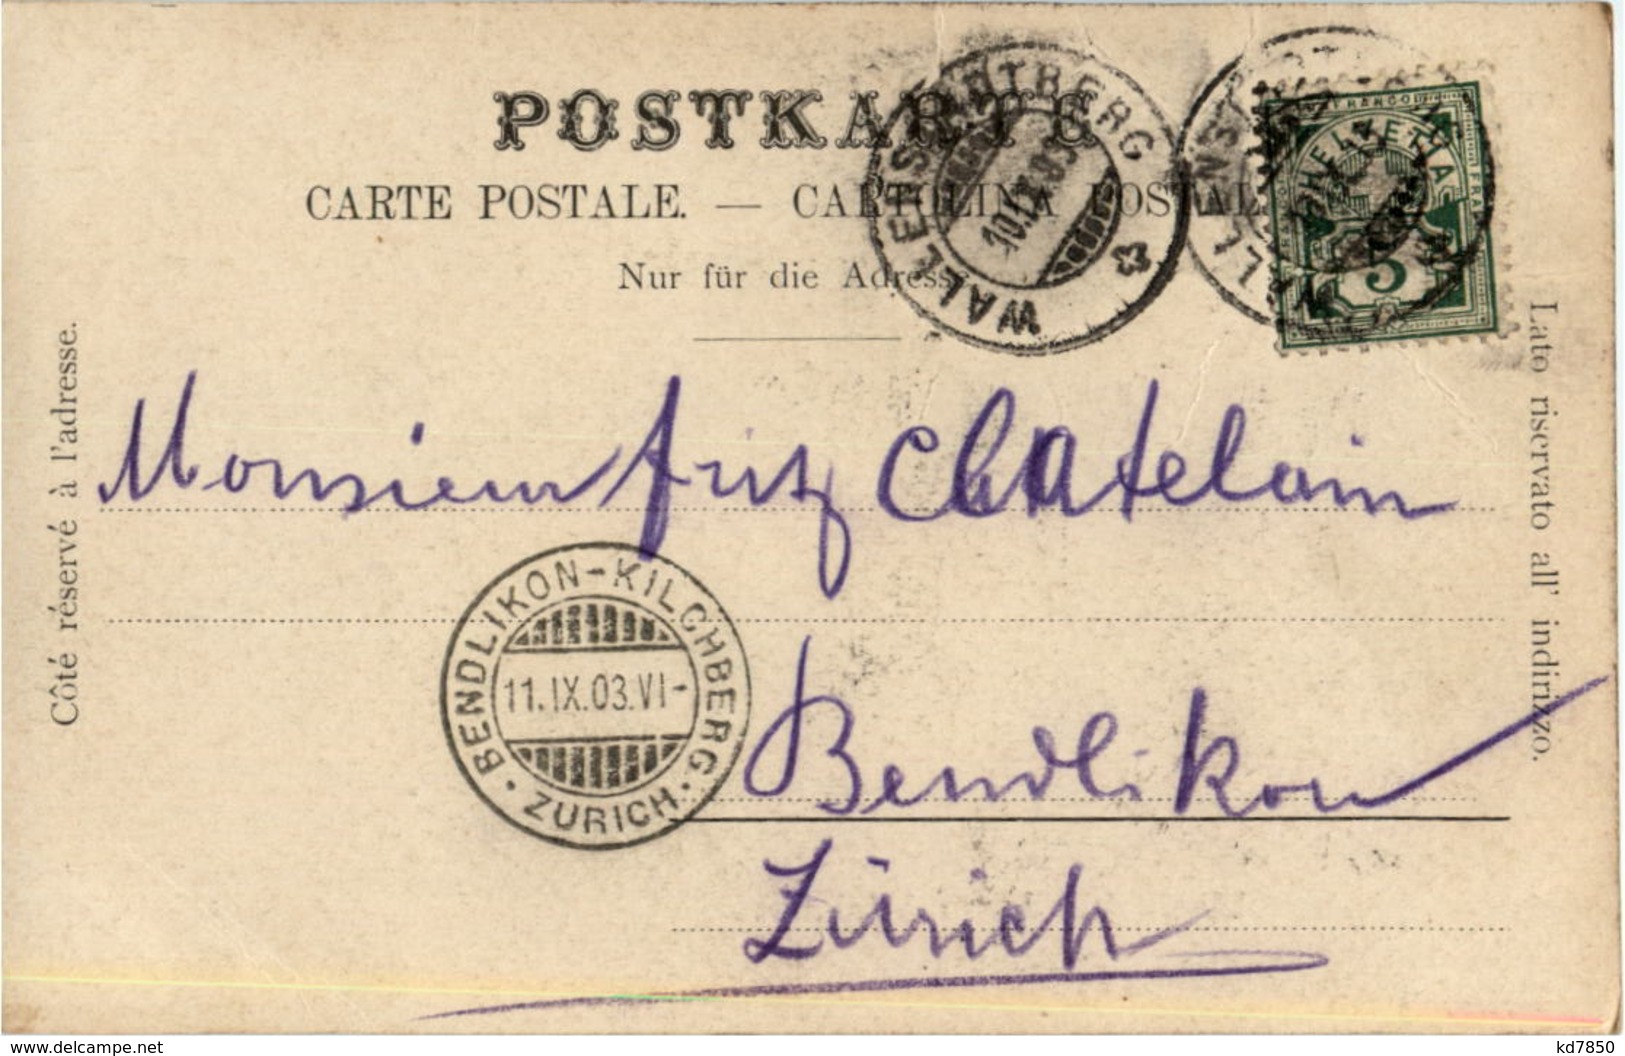 POSTKARTE
CARTE POSTALE. — CARTOLINA POSTALE
Nur für die Adresse
Côté réservé à l'adresse.
Lato riservato all' indirizzo.
WALLENSTADTBERG
10.IX.03
FRANCO
HELVETIA
5
Monsieur Fritz Chatelain
BENDLIKON-KILCHBERG
11.IX.03.VI-
· ZURICH ·
Bendlikon
Zürich
www.delcampe.net
kd7850